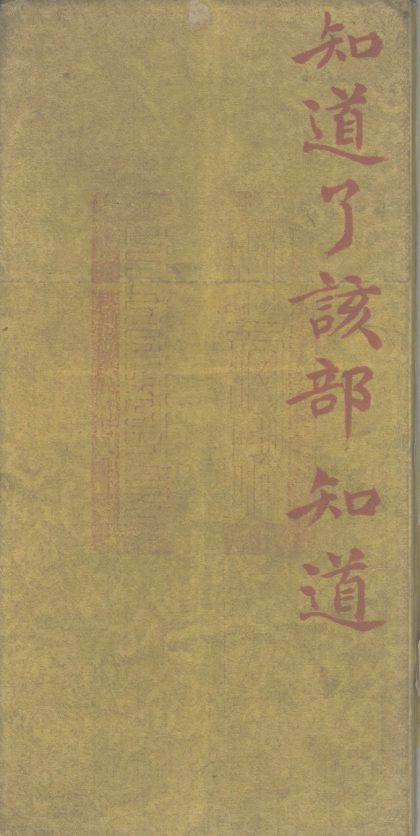 知道了該部知道